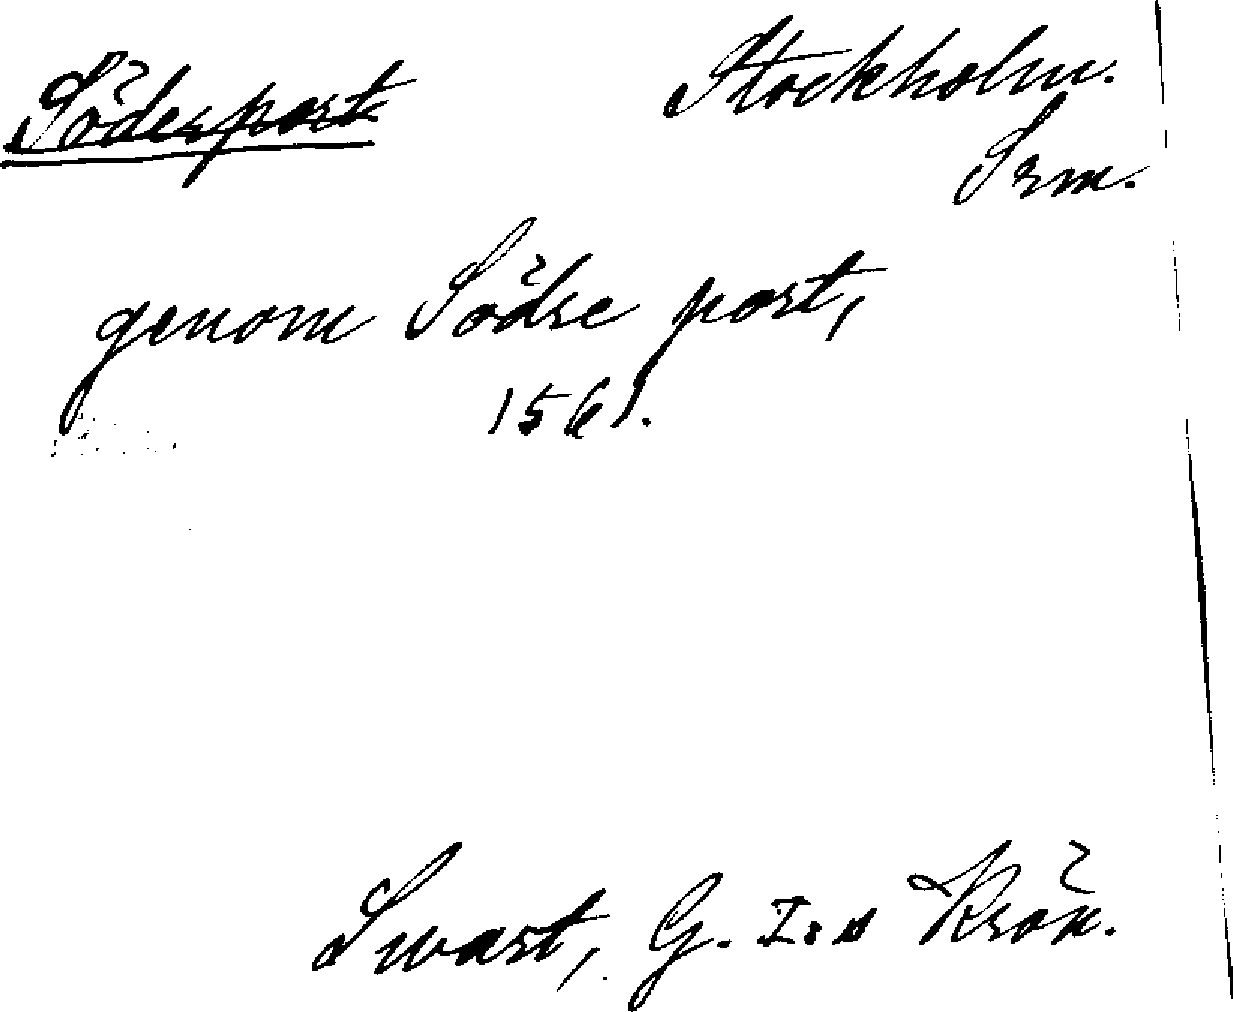 Söderport
Stockholm.
Srm.
genom Södre port,
1561.
Swart, G. I:s Krön.